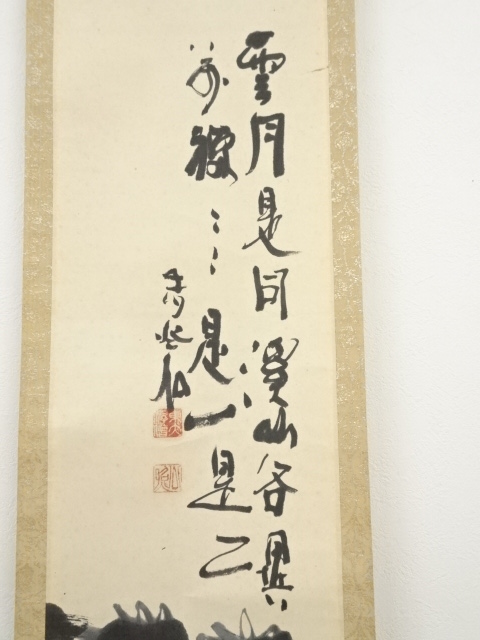 雲月是同溪山各異
萬福〻是一是二